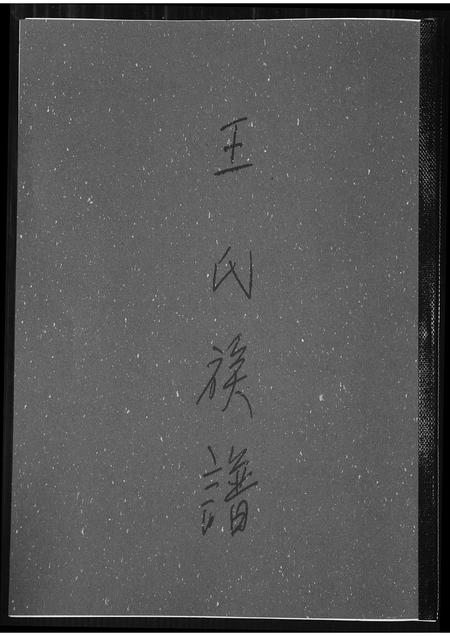 王氏族譜